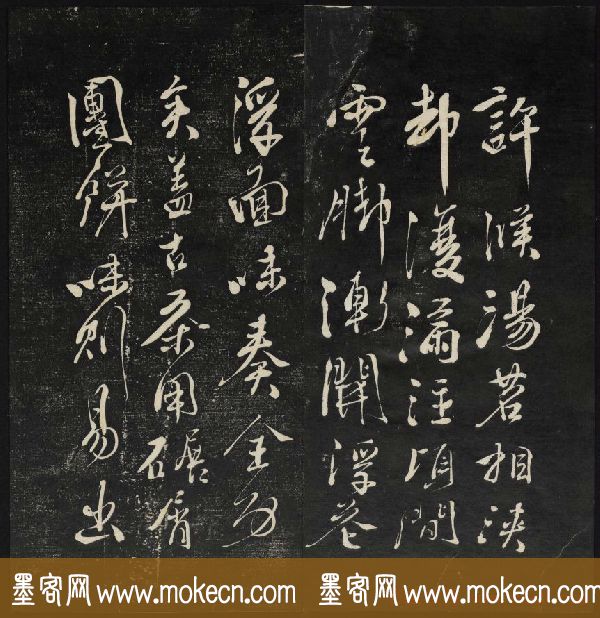 許候湯茗相浹
却復滿注頃間
雲脚漸開浮花
浮面味奏全功
矣盖古茶用碾屑
團餅味則易出
墨客网 www.mokecn.com 墨客网 www.mokecn.com